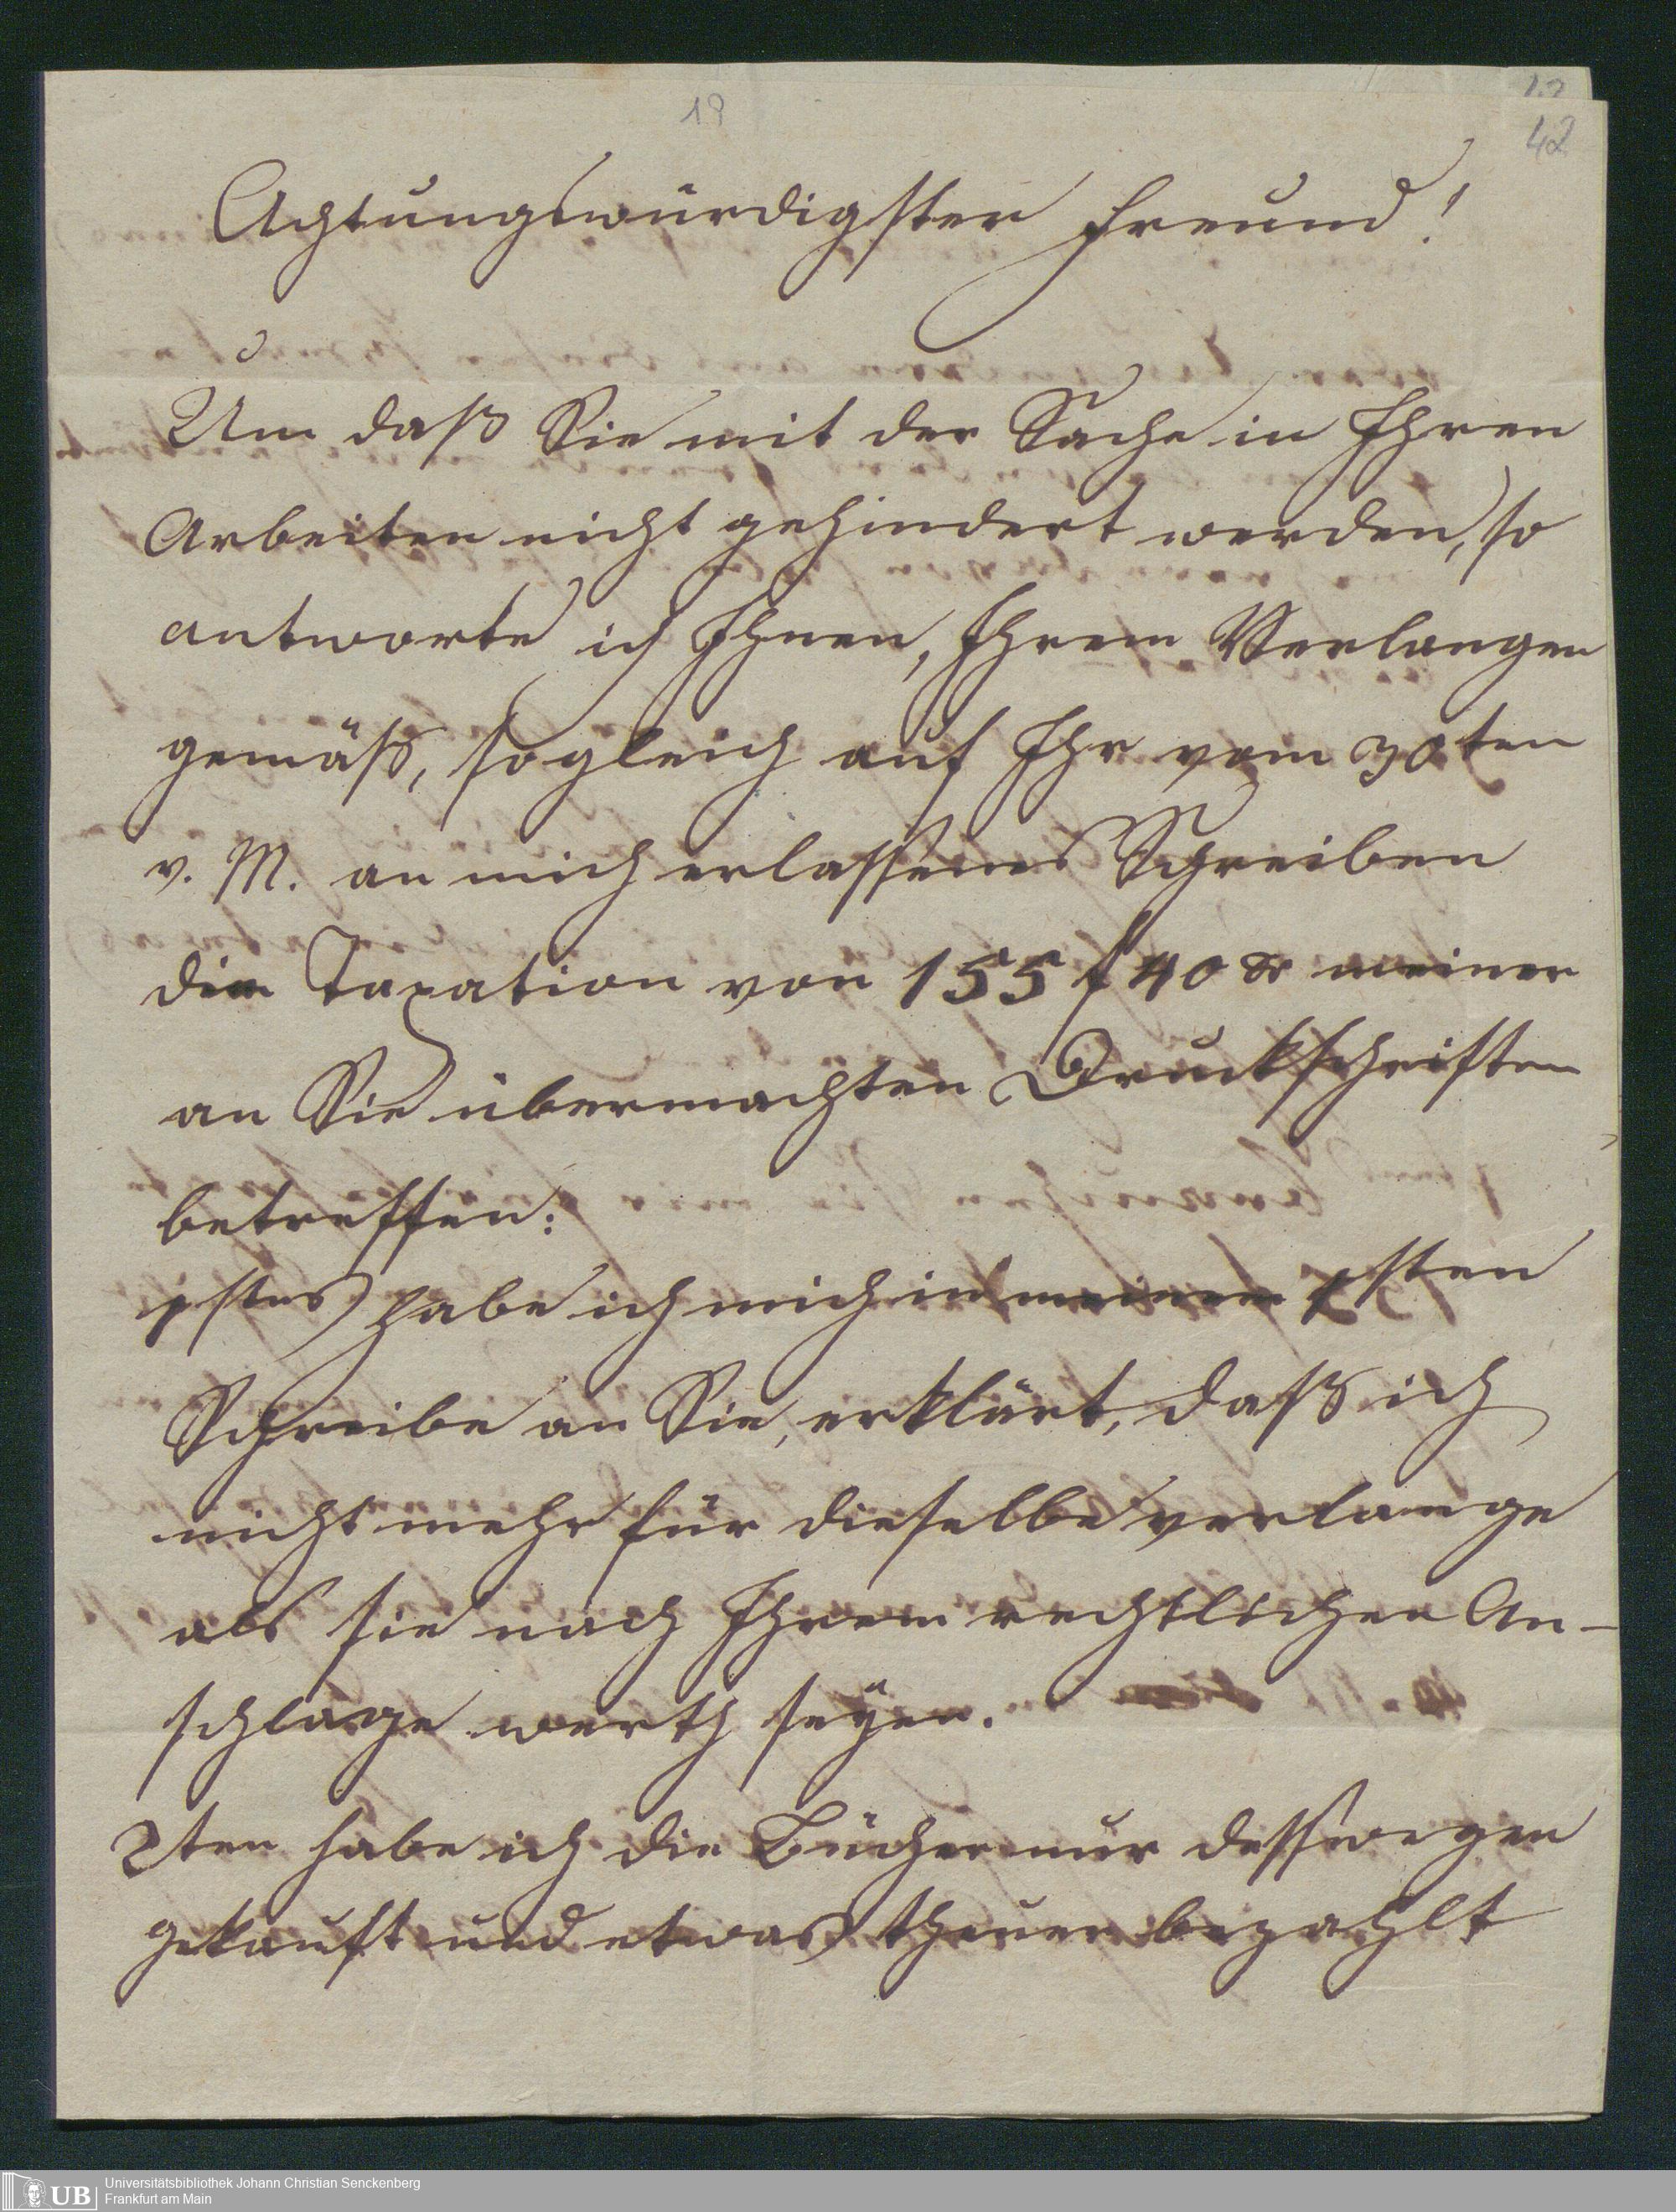 18
42
Achtungswürdigster Freund!
Um daß Sie mit der Sache in Ihren
Arbeiten nicht gehindert werden, so
antworte ich Ihnen, Ihrem Verlangen
gemäß, sogleich auf Ihr vom 30ten
v. M. an mich erlassenes Schreiben
die Taxation von 155 f 40 xr meiner
an Sie übermachten Druckschriften
betreffen:
1stes habe ich mich in meinem 1sten
Schreibe an Sie, erklärt, daß ich
nicht mehr für dieselbe verlange
als sie nach Ihrem rechtlichen An-
schlage werth seyen.
2ten habe ich die Bücher nur desswegen
gekauft und etwas theuer bezahlt
UB
Universitätsbibliothek Johann Christian Senckenberg
Frankfurt am Main